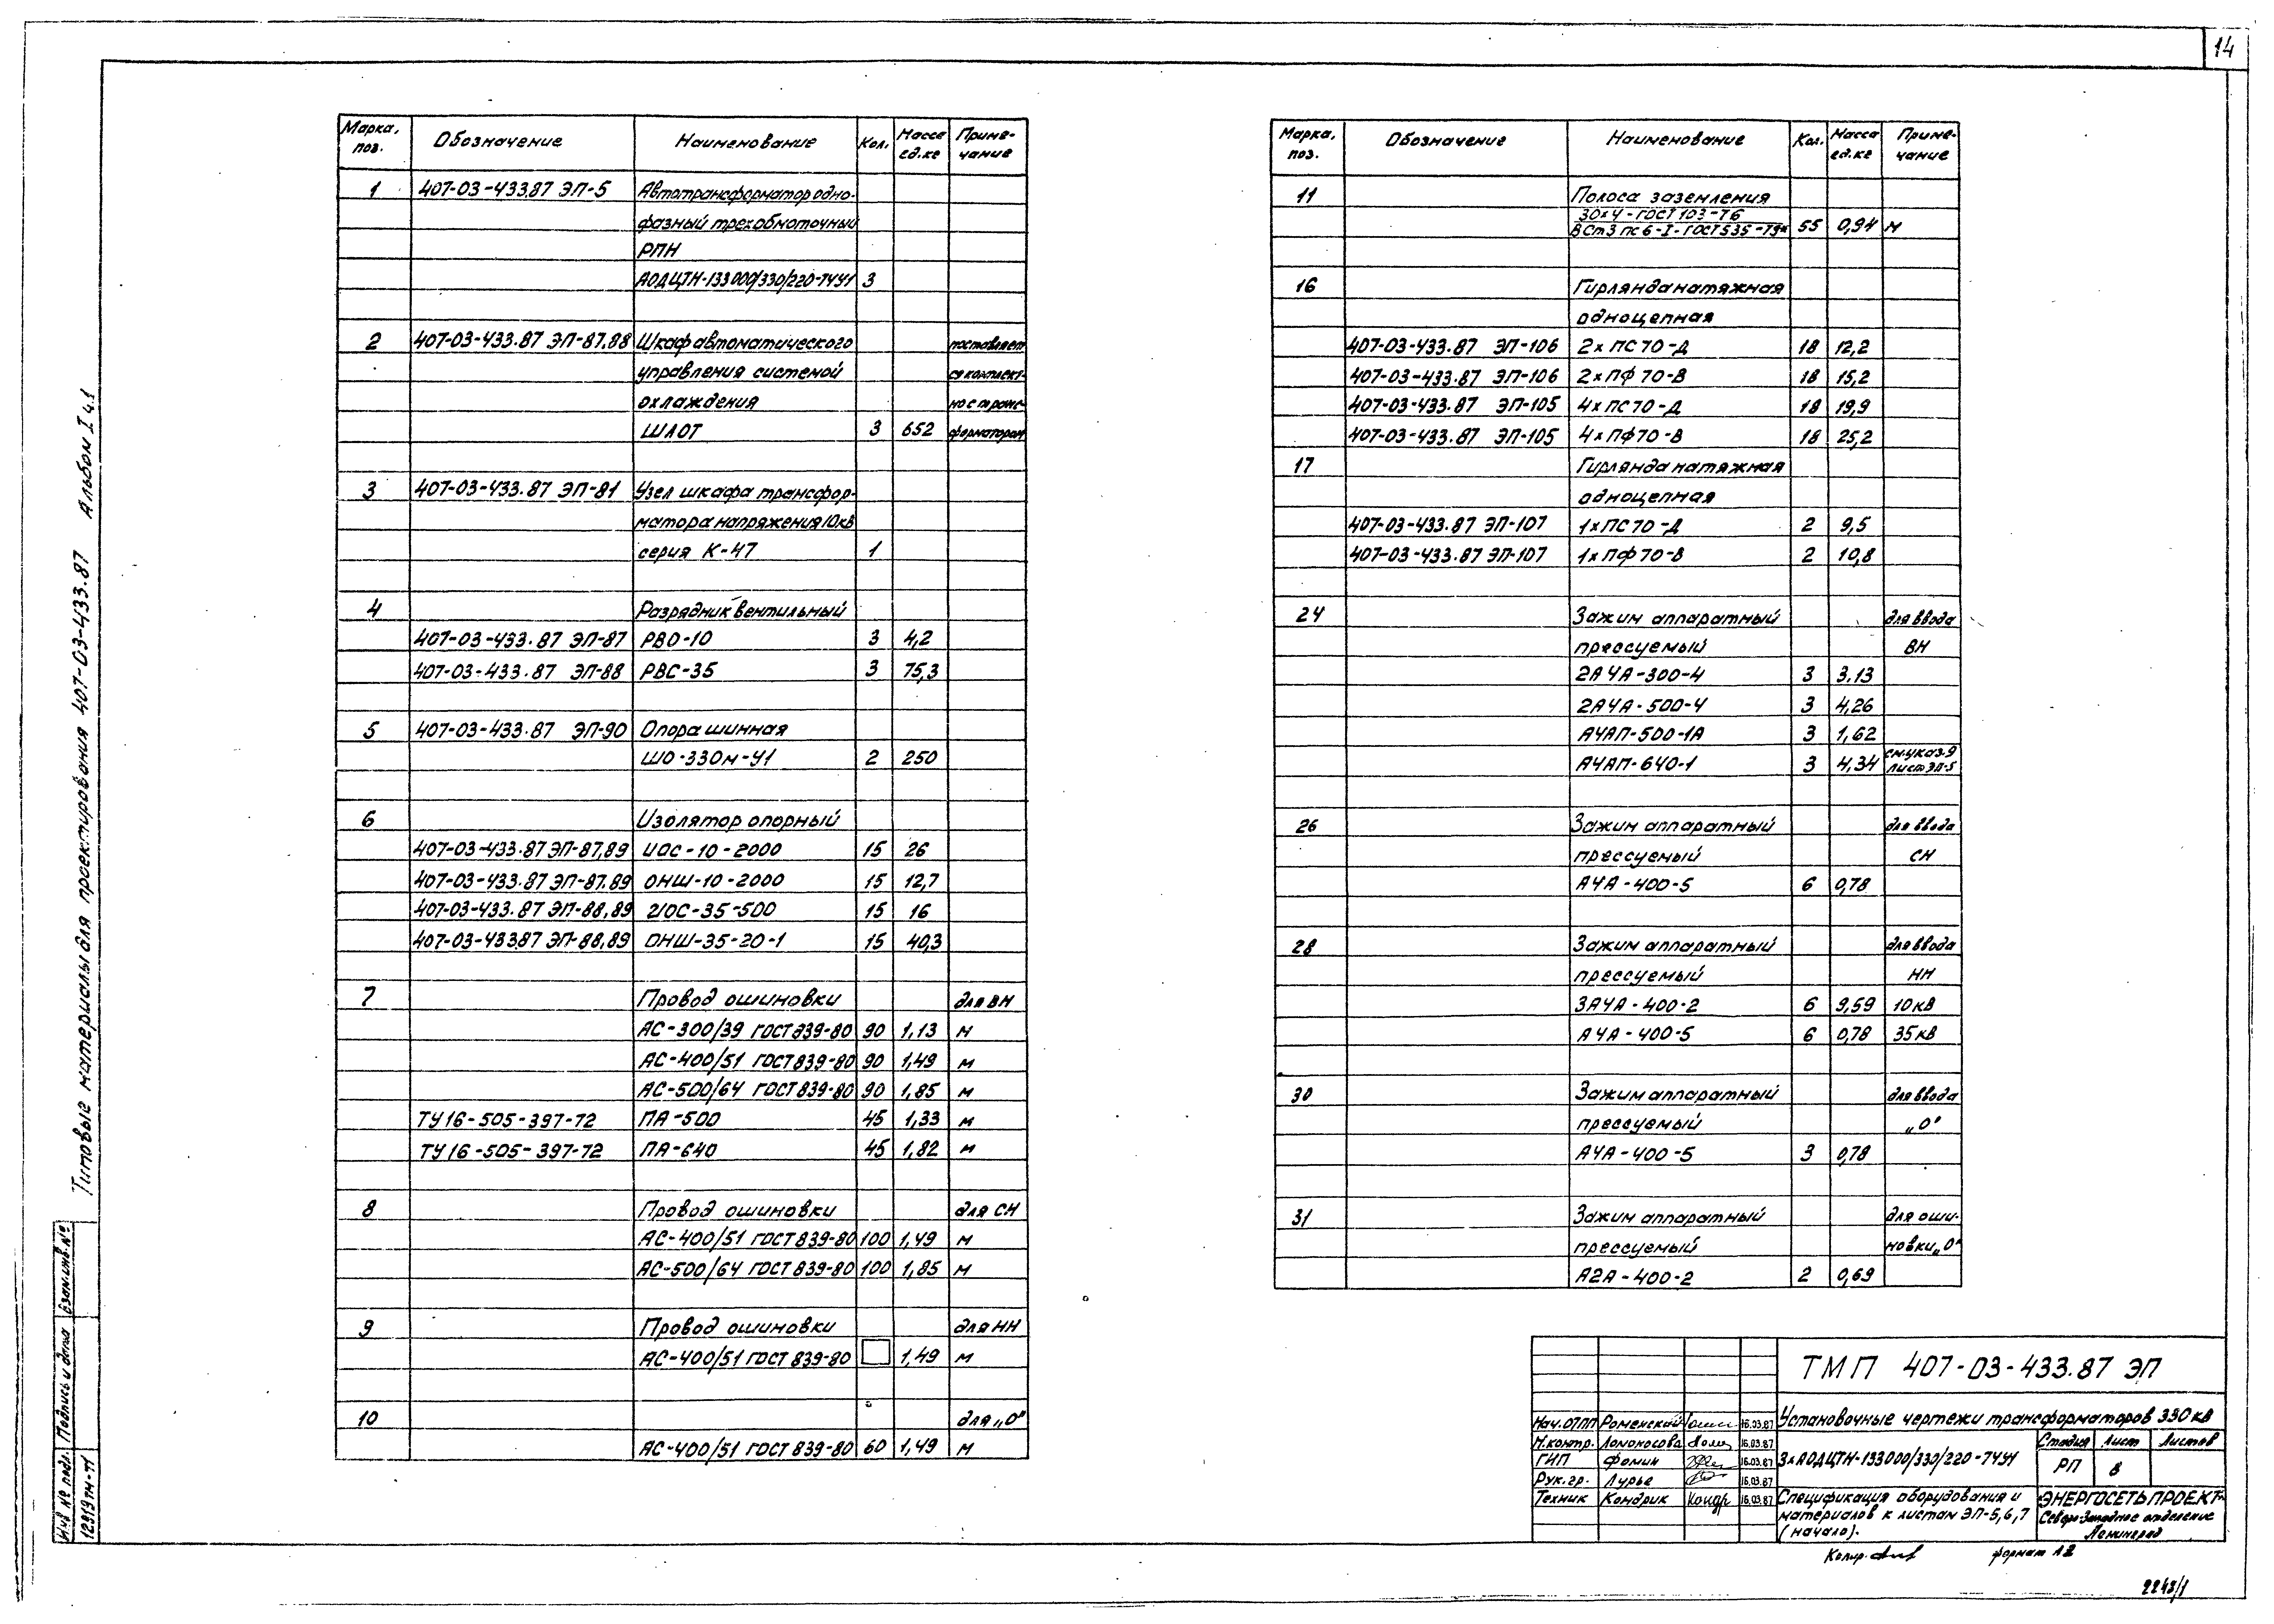 14
Типовые материалы для проектирования 407-03-433.87 Альбом I ч.1
Марка, поз. Обозначение Наименование Кол. Масса ед.кг Примечание
1 407-03-433.87 ЭП-5 Автотрансформатор одно-
фазный трехобмоточный
РПН
АОДЦТН-133000/330/220-74У1 3
2 407-03-433.87 ЭП-87,88 Шкаф автоматического поставляет
управления системой ся комплект-
охлаждения но с транс-
ШАОТ 3 652 форматором
3 407-03-433.87 ЭП-81 Узел шкафа трансфор-
матора напряжения 10кВ
серия К-47 1
4 Разрядник вентильный
407-03-433.87 ЭП-87 РВО-10 3 4,2
407-03-433.87 ЭП-88 РВС-35 3 75,3
5 407-03-433.87 ЭП-90 Опора шинная
ШО-330м-У1 2 250
6 Изолятор опорный
407-03-433.87 ЭП-87,89 ИОС-10-2000 15 26
407-03-433.87 ЭП-87,89 ОНШ-10-2000 15 12,7
407-03-433.87 ЭП-88,89 ИОС-35-500 15 16
407-03-433.87 ЭП-88,89 ОНШ-35-20-1 15 40,3
7 Провод ошиновки для ВН
АС-300/39 ГОСТ 839-80 90 1,13 м
АС-400/51 ГОСТ 839-80 90 1,49 м
АС-500/64 ГОСТ 839-80 90 1,85 м
ТУ16-505-397-72 ПА-500 45 1,33 м
ТУ16-505-397-72 ПА-640 45 1,82 м
8 Провод ошиновки для СН
АС-400/51 ГОСТ 839-80 100 1,49 м
АС-500/64 ГОСТ 839-80 100 1,85 м
9 Провод ошиновки для НН
АС-400/51 ГОСТ 839-80 1,49 м
10 для „0"
АС-400/51 ГОСТ 839-80 60 1,49 м
Марка, поз. Обозначение Наименование Кол. Масса ед.кг Примечание
11 Полоса заземления
30х4-ГОСТ 103-76
ВСт3 пс6-I-ГОСТ 535-79* 55 0,94 м
16 Гирлянда натяжная
одноцепная
407-03-433.87 ЭП-106 2хПС70-Д 18 12,2
407-03-433.87 ЭП-106 2хПФ70-В 18 15,2
407-03-433.87 ЭП-105 4хПС70-Д 18 19,9
407-03-433.87 ЭП-105 4хПФ70-В 18 25,2
17 Гирлянда натяжная
одноцепная
407-03-433.87 ЭП-107 1хПС70-Д 2 9,5
407-03-433.87 ЭП-107 1хПФ70-В 2 10,8
24 Зажим аппаратный для ввода
прессуемый ВН
2А4А-300-4 3 3,13
2А4А-500-4 3 4,26
А4АП-500-1А 3 1,62
А4АП-640-1 3 4,34 см.указ.9 лист ЭП-5
26 Зажим аппаратный для ввода
прессуемый СН
А4А-400-5 6 0,78
28 Зажим аппаратный для ввода
прессуемый НН
3А4А-400-2 6 9,59 10кВ
А4А-400-5 6 0,78 35кВ
30 Зажим аппаратный для ввода
прессуемый „0"
А4А-400-5 3 0,78
31 Зажим аппаратный для оши-
прессуемый новки „0"
А2А-400-2 2 0,69
ТМП 407-03-433.87 ЭП
Нач.ОТПП Роменский 16.03.87 Установочные чертежи трансформаторов 330кВ
Н.контр. Ломоносова 16.03.87
ГИП Фомин 16.03.87
Рук.гр. Лурье 16.03.87
Техник Кондрик 16.03.87
3хАОДЦТН-133000/330/220-74У1
Стадия Лист Листов
РП 8
Спецификация оборудования и
материалов к листам ЭП-5,6,7
(начало).
«ЭНЕРГОСЕТЬПРОЕКТ»
Северо-Западное отделение
Ленинград
Копир. формат А2
2243/1
Инв № подл. Подпись и дата Взам.инв.№
12919тм-т1